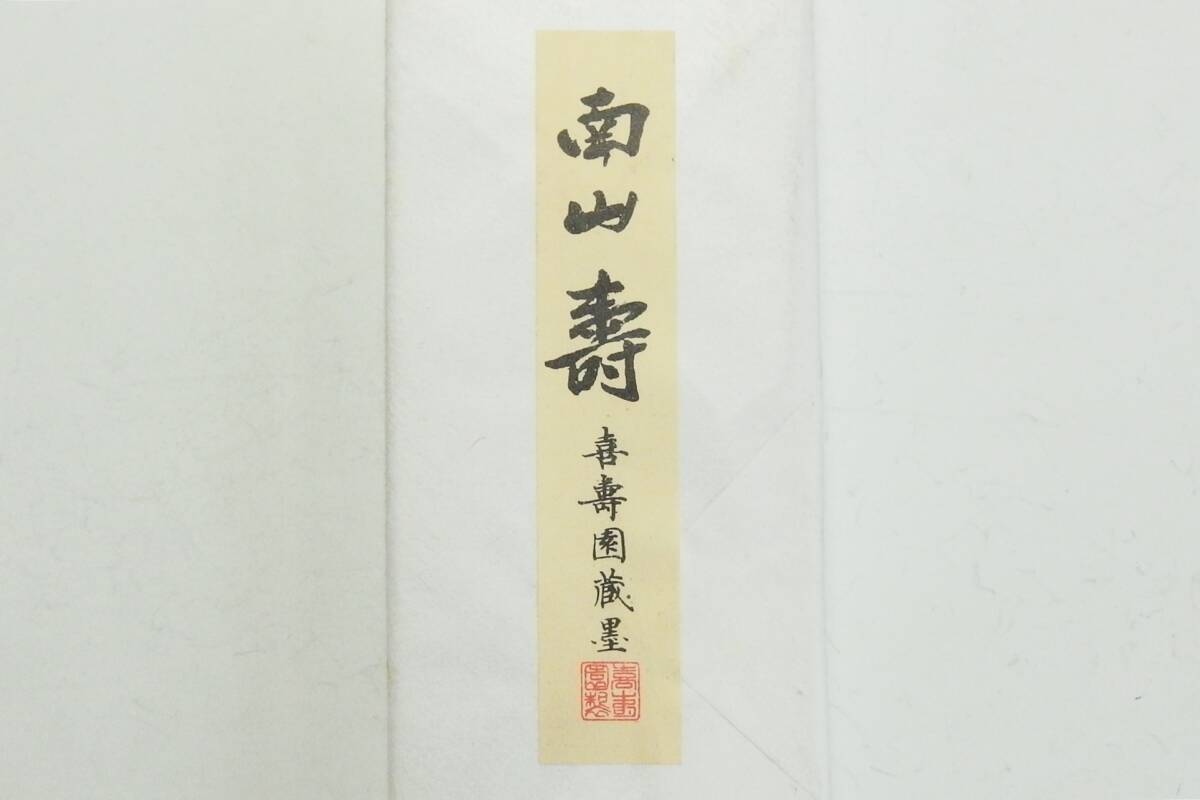 南山壽
喜壽園蔵墨
喜寿園製